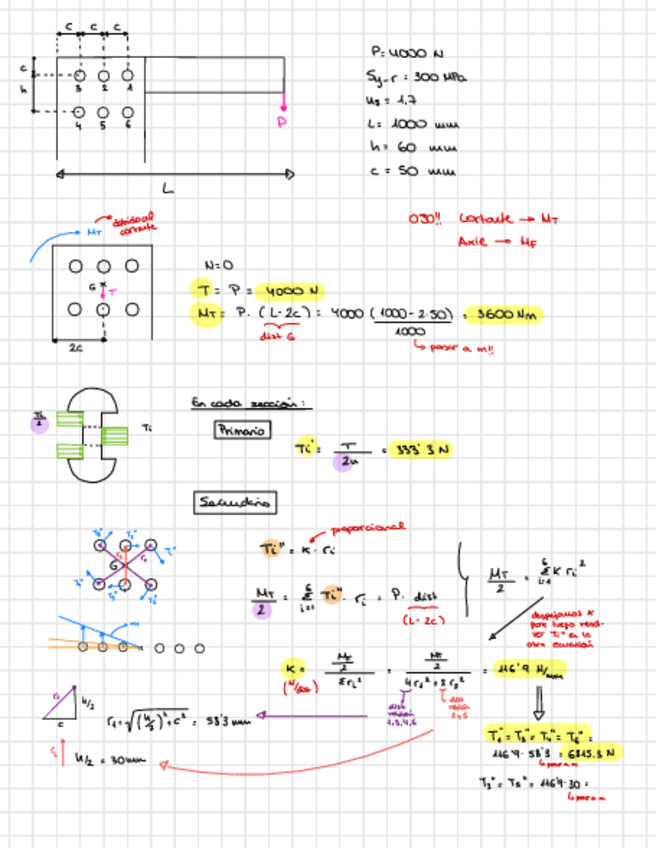 c c c
c
h
3 2 1
4 5 6
P
L
P = 4000 N
Sy-r = 300 MPa
us = 1,7
L = 1000 mm
h = 60 mm
c = 50 mm
OJO!! Cortante → MT
Axil → MF
debido al cortante
MT
G T
2c
N = 0
T = P = 4000 N
MT = P · (L - 2c) = 4000 (1000 - 2·50) / 1000 = 3600 Nm
dist G
↳ pasar a m!!
Ti/2
Ti
En cada sección:
Primario
Ti' = T / 2n = 333'3 N
Secundario
proporcional
Ti'' = k · ri
MT/2 = Σ i=1 6 Ti'' · ri = P · dist
(L-2c)
MT/2 = Σ i=1 6 k ri²
despejamos k para luego
Ti'' en la otra ecuación
k = MT/2 / Σri² = MT/2 / 4r1² + 2r2² = 116'9 N/mm
dist
1,3,4,6
dist
2 y 5
r1
h/2
c
r1 = √(h/2)² + c² = 58'3 mm
r2
h/2 = 30 mm
T1'' = T3'' = T4'' = T6'' =
116'9 · 58'3 = 6815.3 N
T2'' = T5'' = 116'9 · 30 =